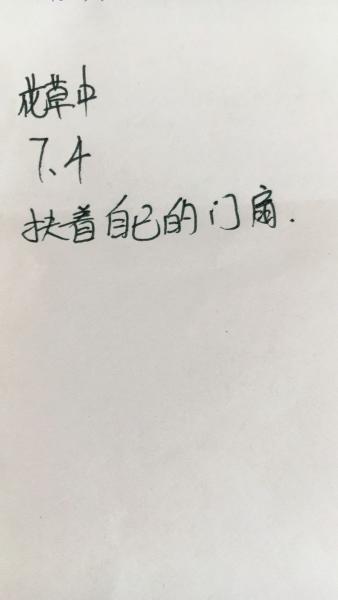 花草中
7、4
扶着自己的门扇.